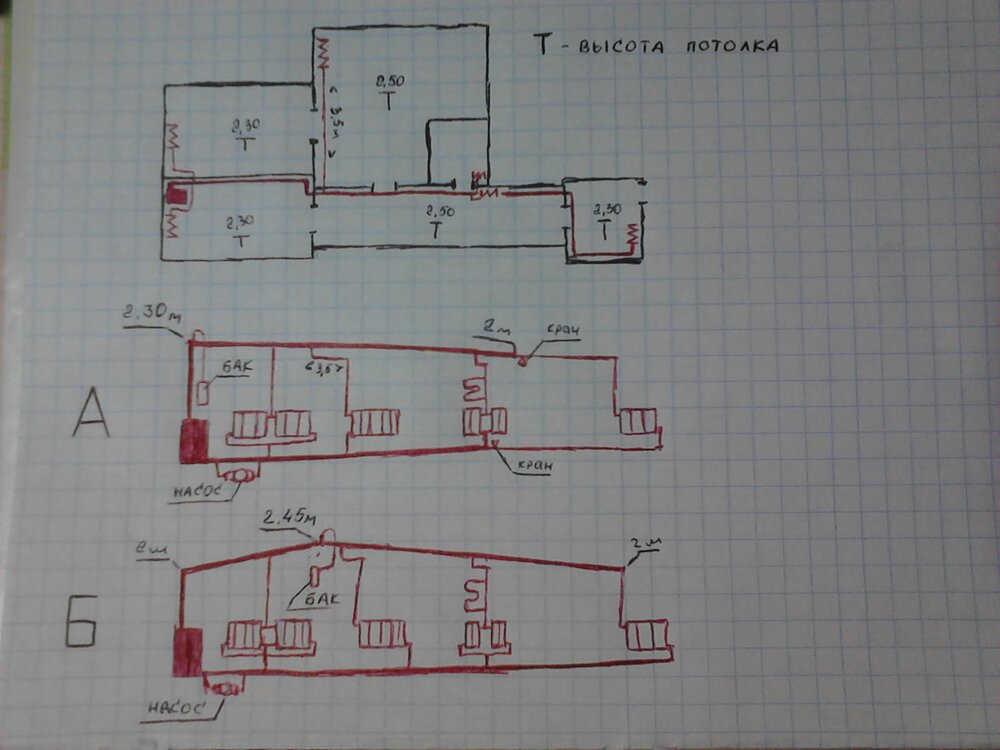 Т - ВЫСОТА ПОТОЛКА
2,50
Т
< 3,5м >
2,30
Т
2,30
Т
2,50
Т
2,30
Т
А
2,30м
БАК
<3,5>
2м
кран
кран
НАСОС
Б
2м
2,45м
2м
БАК
НАСОС